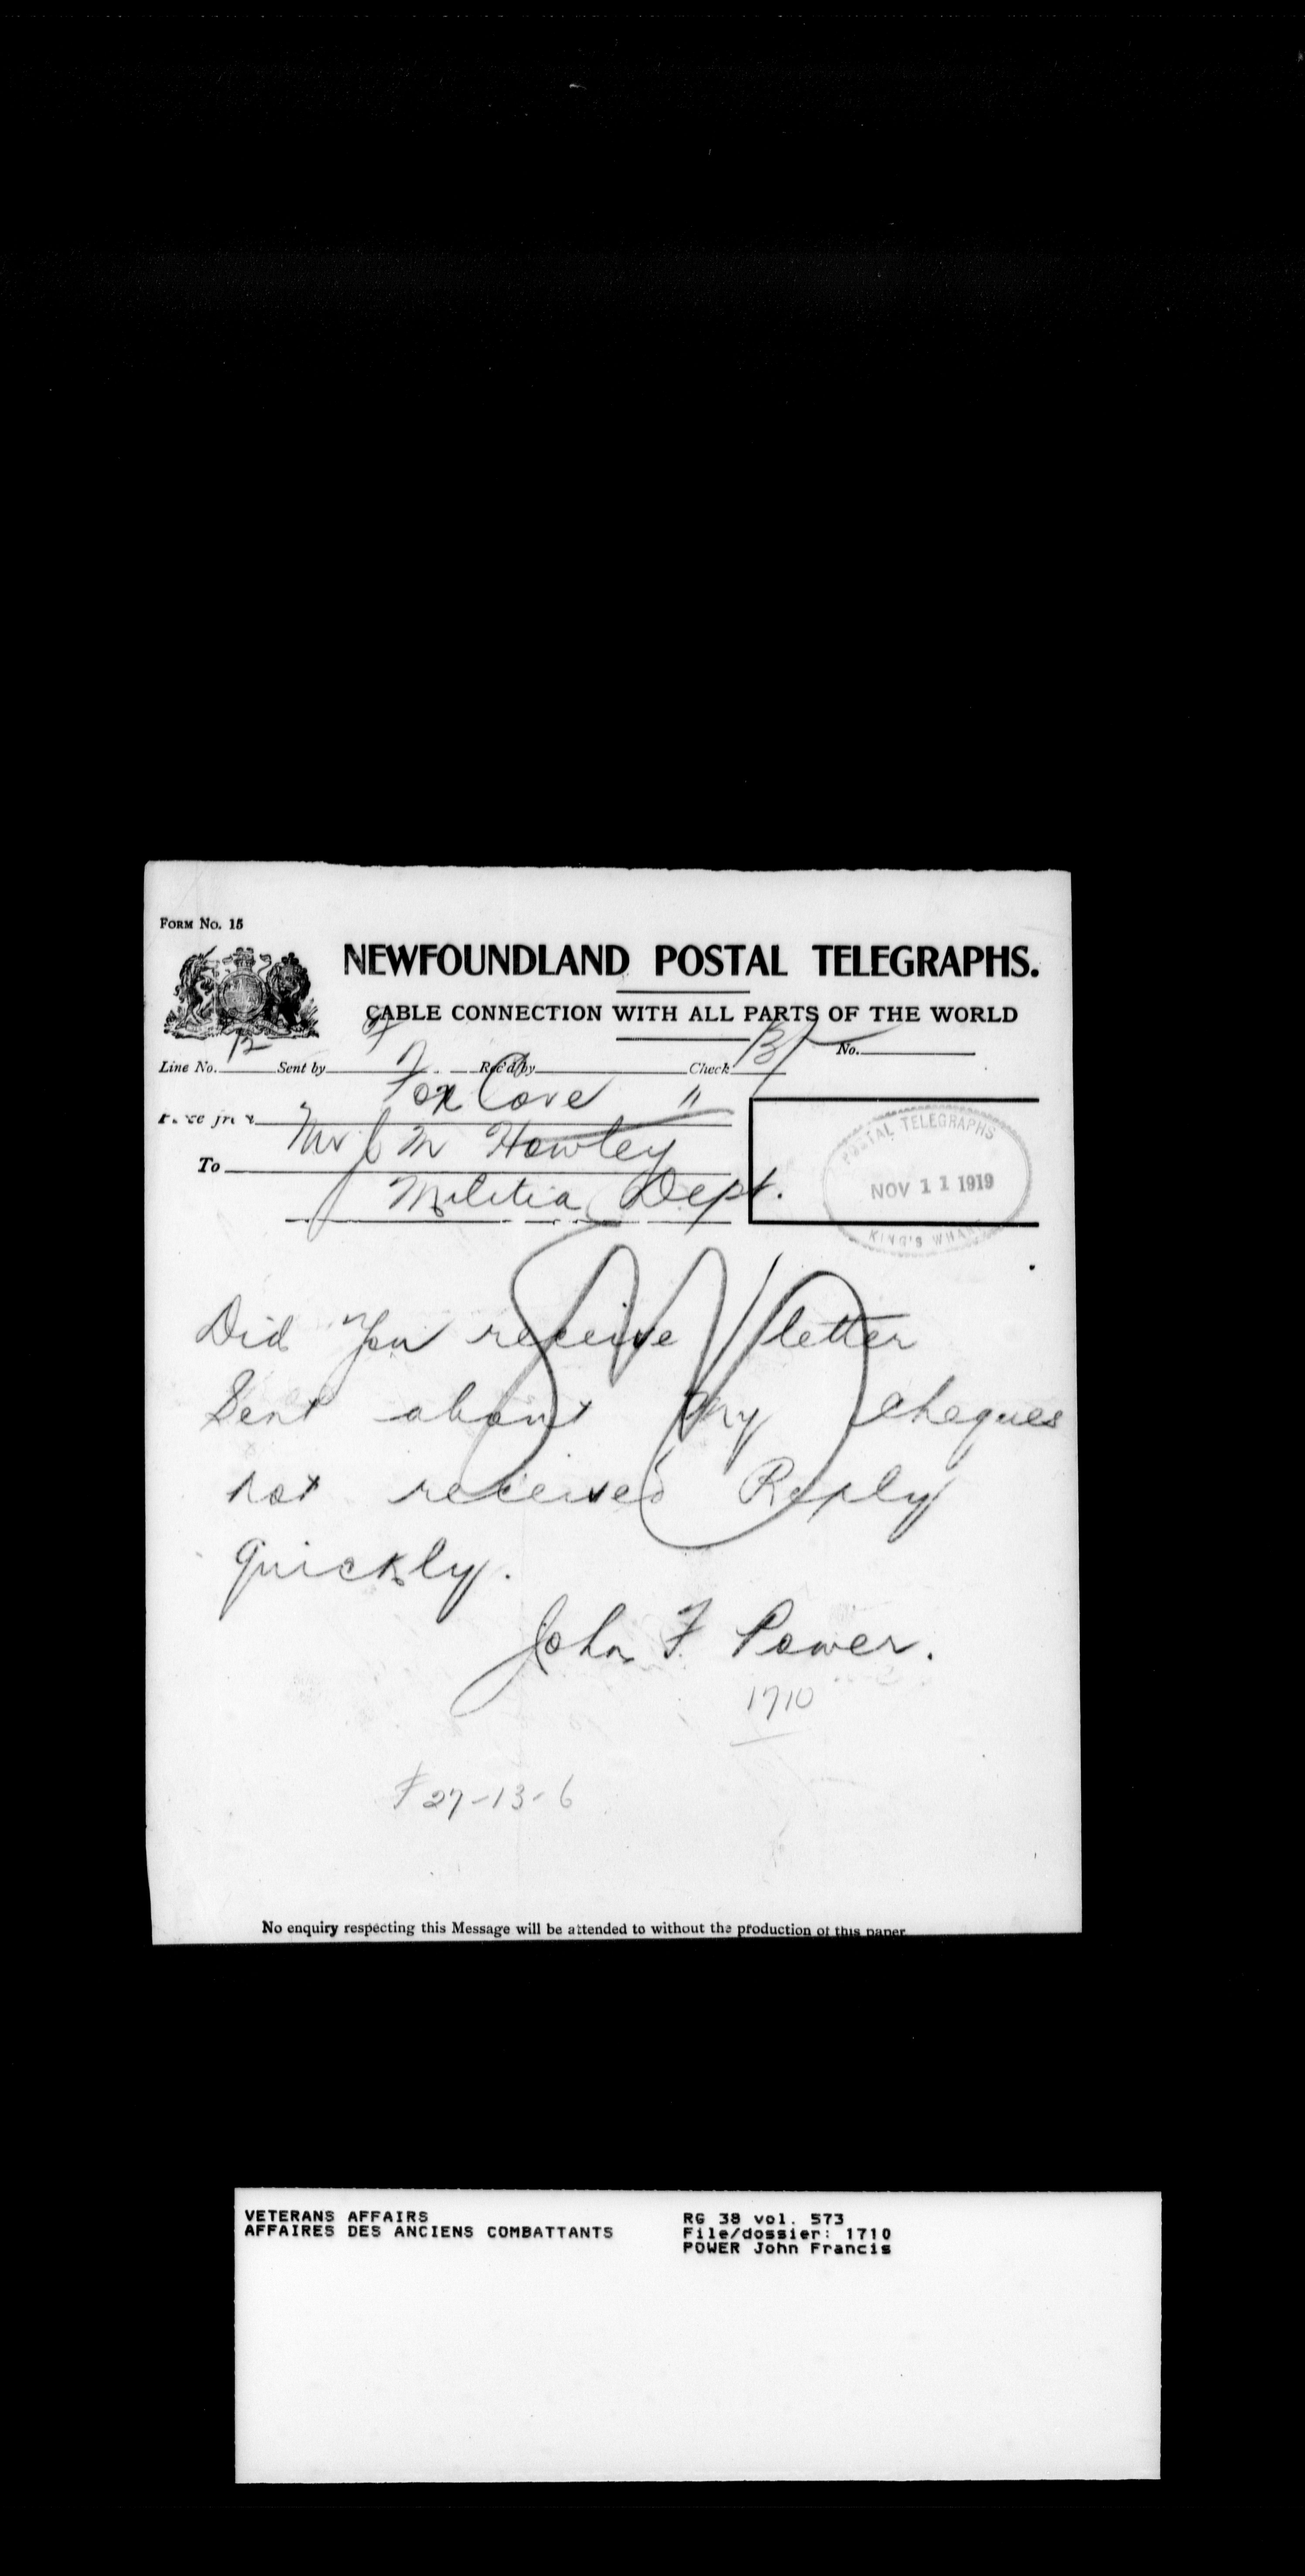 FORM No. 15
NEWFOUNDLAND POSTAL TELEGRAPHS.
CABLE CONNECTION WITH ALL PARTS OF THE WORLD
Line No. 12 Sent by Rec'd by Check No.
Fox Cove 11
To Mr J M Howley
Militia Dept.
POSTAL TELEGRAPHS
NOV 11 1919
KING'S WHARF
Did You receive letter
Sent about my cheques
not received Reply
quickly.
John F Power.
1710
27-13-6
No enquiry respecting this Message will be attended to without the production of this paper
VETERANS AFFAIRS
AFFAIRES DES ANCIENS COMBATTANTS
RG 38 vol. 573
File/dossier: 1710
POWER John Francis